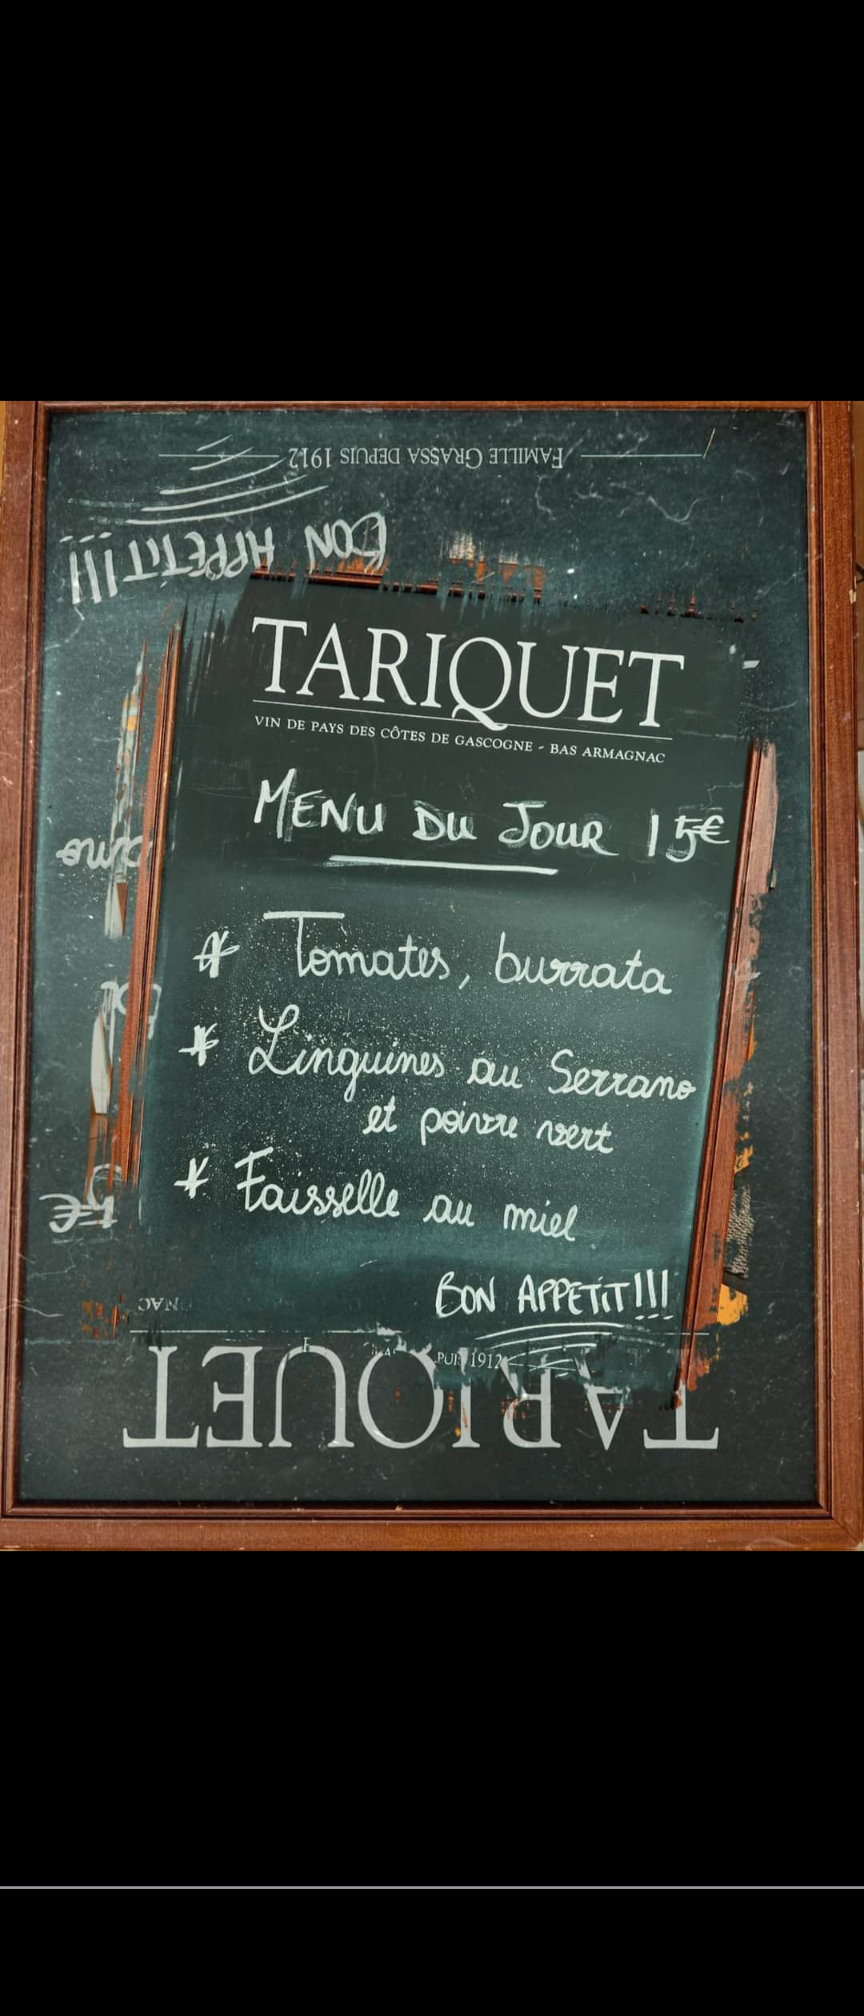 FAMILLE GRASSA DEPUIS 1912
BON APPETIT!!!
TARIQUET
VIN DE PAYS DES CÔTES DE GASCOGNE - BAS ARMAGNAC
MENU DU JOUR 15€
* Tomates, burrata
* Linguines au Serrano
et poivre vert
* Faisselle au miel
BON APPETIT!!!
1912
TARIQUET